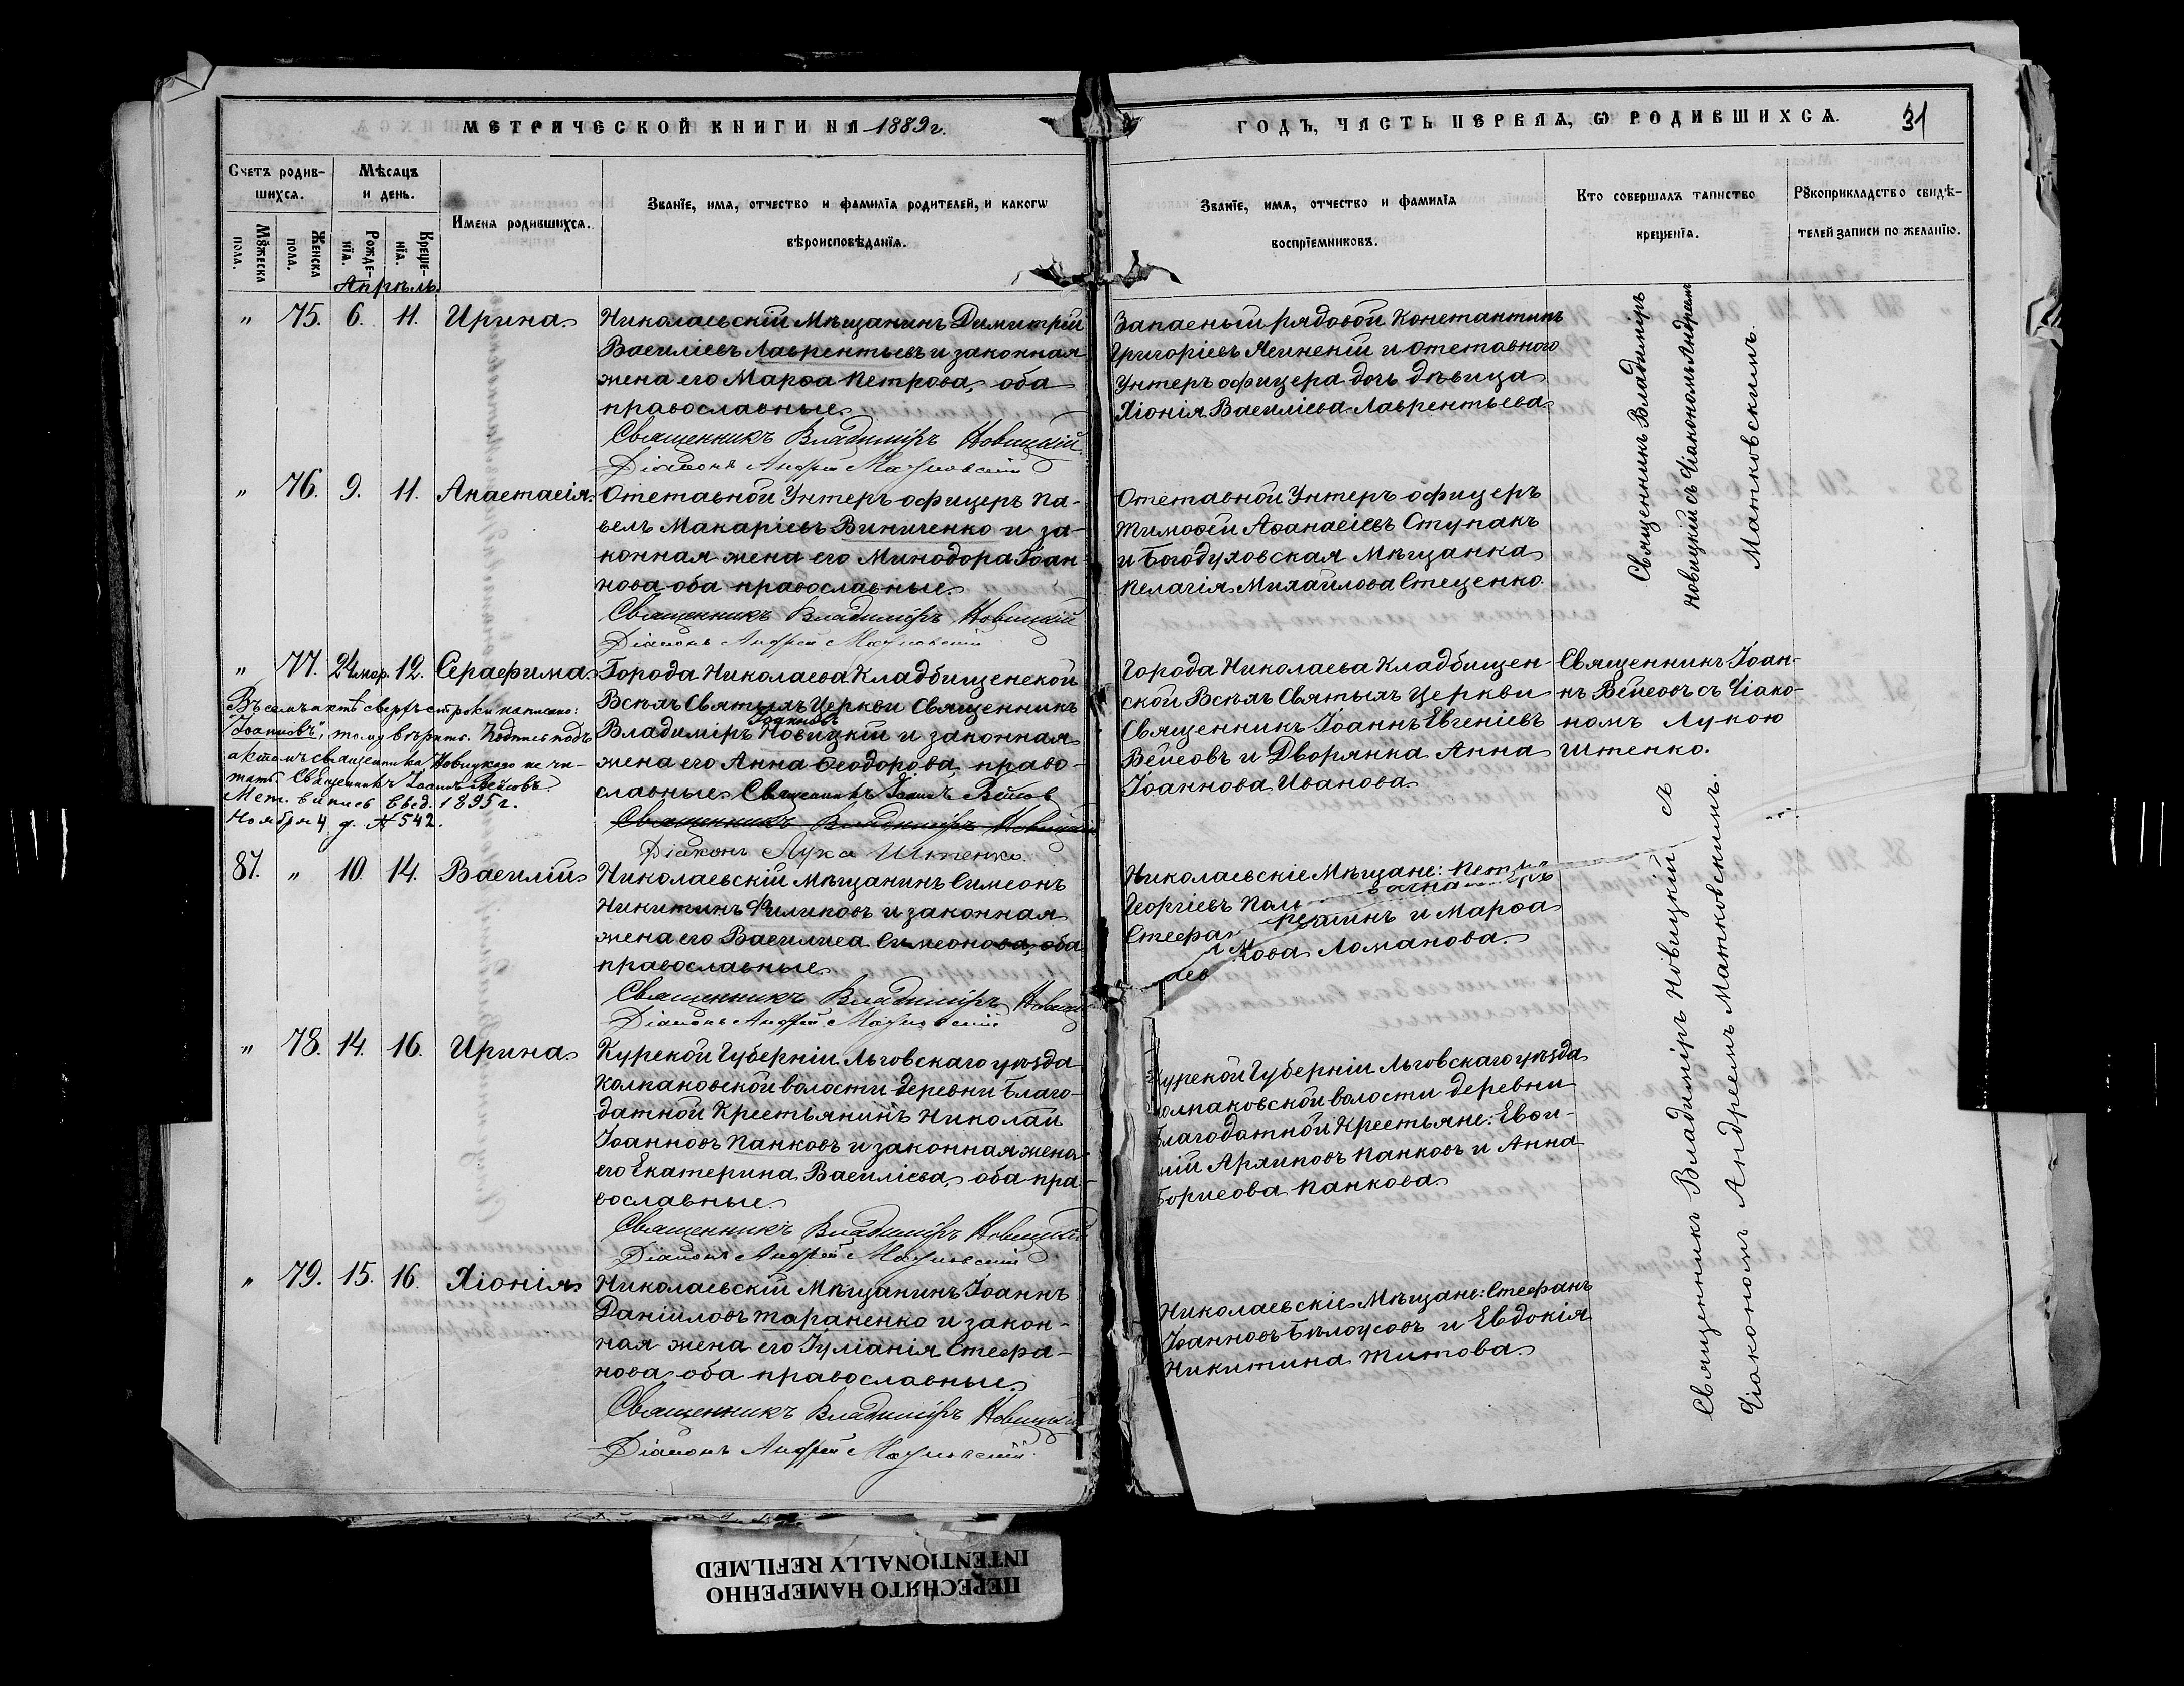 МЕТРИЧЕСКОЙ КНИГИ НА 1889 г.
Счетъ родив-
шихся.
Мѣсяцъ
и день.
Имена родившихся.
Званїе, имя, отчество и фамилїа родителей, и какогѡ
вѣроисповѣданїя.
Мꙋжеска
пола.
Женска
пола.
Рожде-
нїя.
Креще-
нїя.
Апрѣль.
" 75. 6. 11. Ирина
Николаевскій Мѣщанинъ Димитрій
Василіевъ Лаврентьевъ и законная
жена его Марѳа Петрова, оба
православные.
Священникъ Владиміръ Новицкій
Діаконъ Андрей Матковскій
" 76. 9. 11. Анастасія
Отставной Унтеръ офицеръ Па-
велъ Макаріевъ Виниченко и за-
конная жена его Минодора Іоан-
нова оба православные.
Священникъ Владиміръ Новицкій
Діаконъ Андрей Матковскій
" 77. 24 мар. 12. Серафима
Города Николаева Кладбищенской
Всѣхъ Святыхъ Церкви Священникъ
Іоанновъ
Владиміръ Новицкій и законная
жена его Анна Ѳеодорова, право-
славные. Священникъ Іоаннъ Вейсовъ
Священникъ Владиміръ Новицкій
Діаконъ Лука Штенко
Въ семъ актѣ сверхъ строки написано:
"Іоанновъ", тому вѣрить. Подпись подъ
актомъ священника Новицкаго не чи-
тать. Священникъ Іоаннъ Вейсовъ
Мет. выпись выд. 1895 г.
Ноября 4 д. № 542.
87. " 10. 14. Василій
Николаевскій Мѣщанинъ Симеонъ
Никитинъ Филиповъ и законная
жена его Василиса Симеонова, оба
православные
Священникъ Владиміръ Новицкій
Діаконъ Андрей Матковскій
" 78. 14. 16. Ирина
Курской Губерніи Льговскаго уѣзда
Колпаковской волости деревни Благо-
датной Крестьянинъ Николай
Іоанновъ Панковъ и законная жена
его Екатерина Василіева, оба пра-
вославные
Священникъ Владиміръ Новицкій
Діаконъ Андрей Матковскій
" 79. 15. 16. Хіонія
Николаевскій Мѣщанинъ Іоаннъ
Даніиловъ Тараненко и закон-
ная жена его Іуліанія Стефа-
нова оба православные
Священникъ Владиміръ Новицкій
Діаконъ Андрей Матковскій
ГОДЪ, ЧАСТЬ ПЕРВАЯ, Ѡ РОДИВШИХСЯ.
31
Званїе, имя, отчество и фамилїа
воспрїемниковъ.
Кто совершалъ таинство
крещенїя.
Рꙋкоприкладство свидѣ-
телей записи по желанїю.
Запасный рядовой Константинъ
Григоріевъ Ясинскій и отставного
Унтеръ офицера дочь дѣвица
Хіонія Василіева Лаврентьева
Отставной Унтеръ офицеръ
Тимоѳей Аѳанасіевъ Ступакъ
и Богодуховская Мѣщанка
Пелагія Михайлова Стеценко.
Священникъ Владиміръ
Новицкій съ Діакономъ Андреемъ
Матковскимъ.
Города Николаева Кладбищен-
ской Всѣхъ Святыхъ Церкви
Священникъ Іоаннъ Евгеніевъ
Вейсовъ и Дворянка Анна
Іоаннова Иванова
Священникъ Іоан-
нъ Вейсовъ съ Діако-
номъ Лукою
Штенко.
Николаевскіе Мѣщане:
Георгіевъ
и Марѳа
Ломанова.
Курской Губерніи Льговскаго уѣзда
Колпаковской волости деревни
Благодатной Крестьяне: Евѳи-
мій Архиповъ Панковъ и Анна
Борисова Панкова
Николаевскіе Мѣщане: Стефанъ
Іоанновъ Бѣлоусовъ и Евдокія
Никитина Титова
Священникъ Владиміръ Новицкій съ
Діакономъ Андреемъ Матковскимъ.
ПЕРЕСНЯТО НАМЕРЕННО
INTENTIONALLY REFILMED